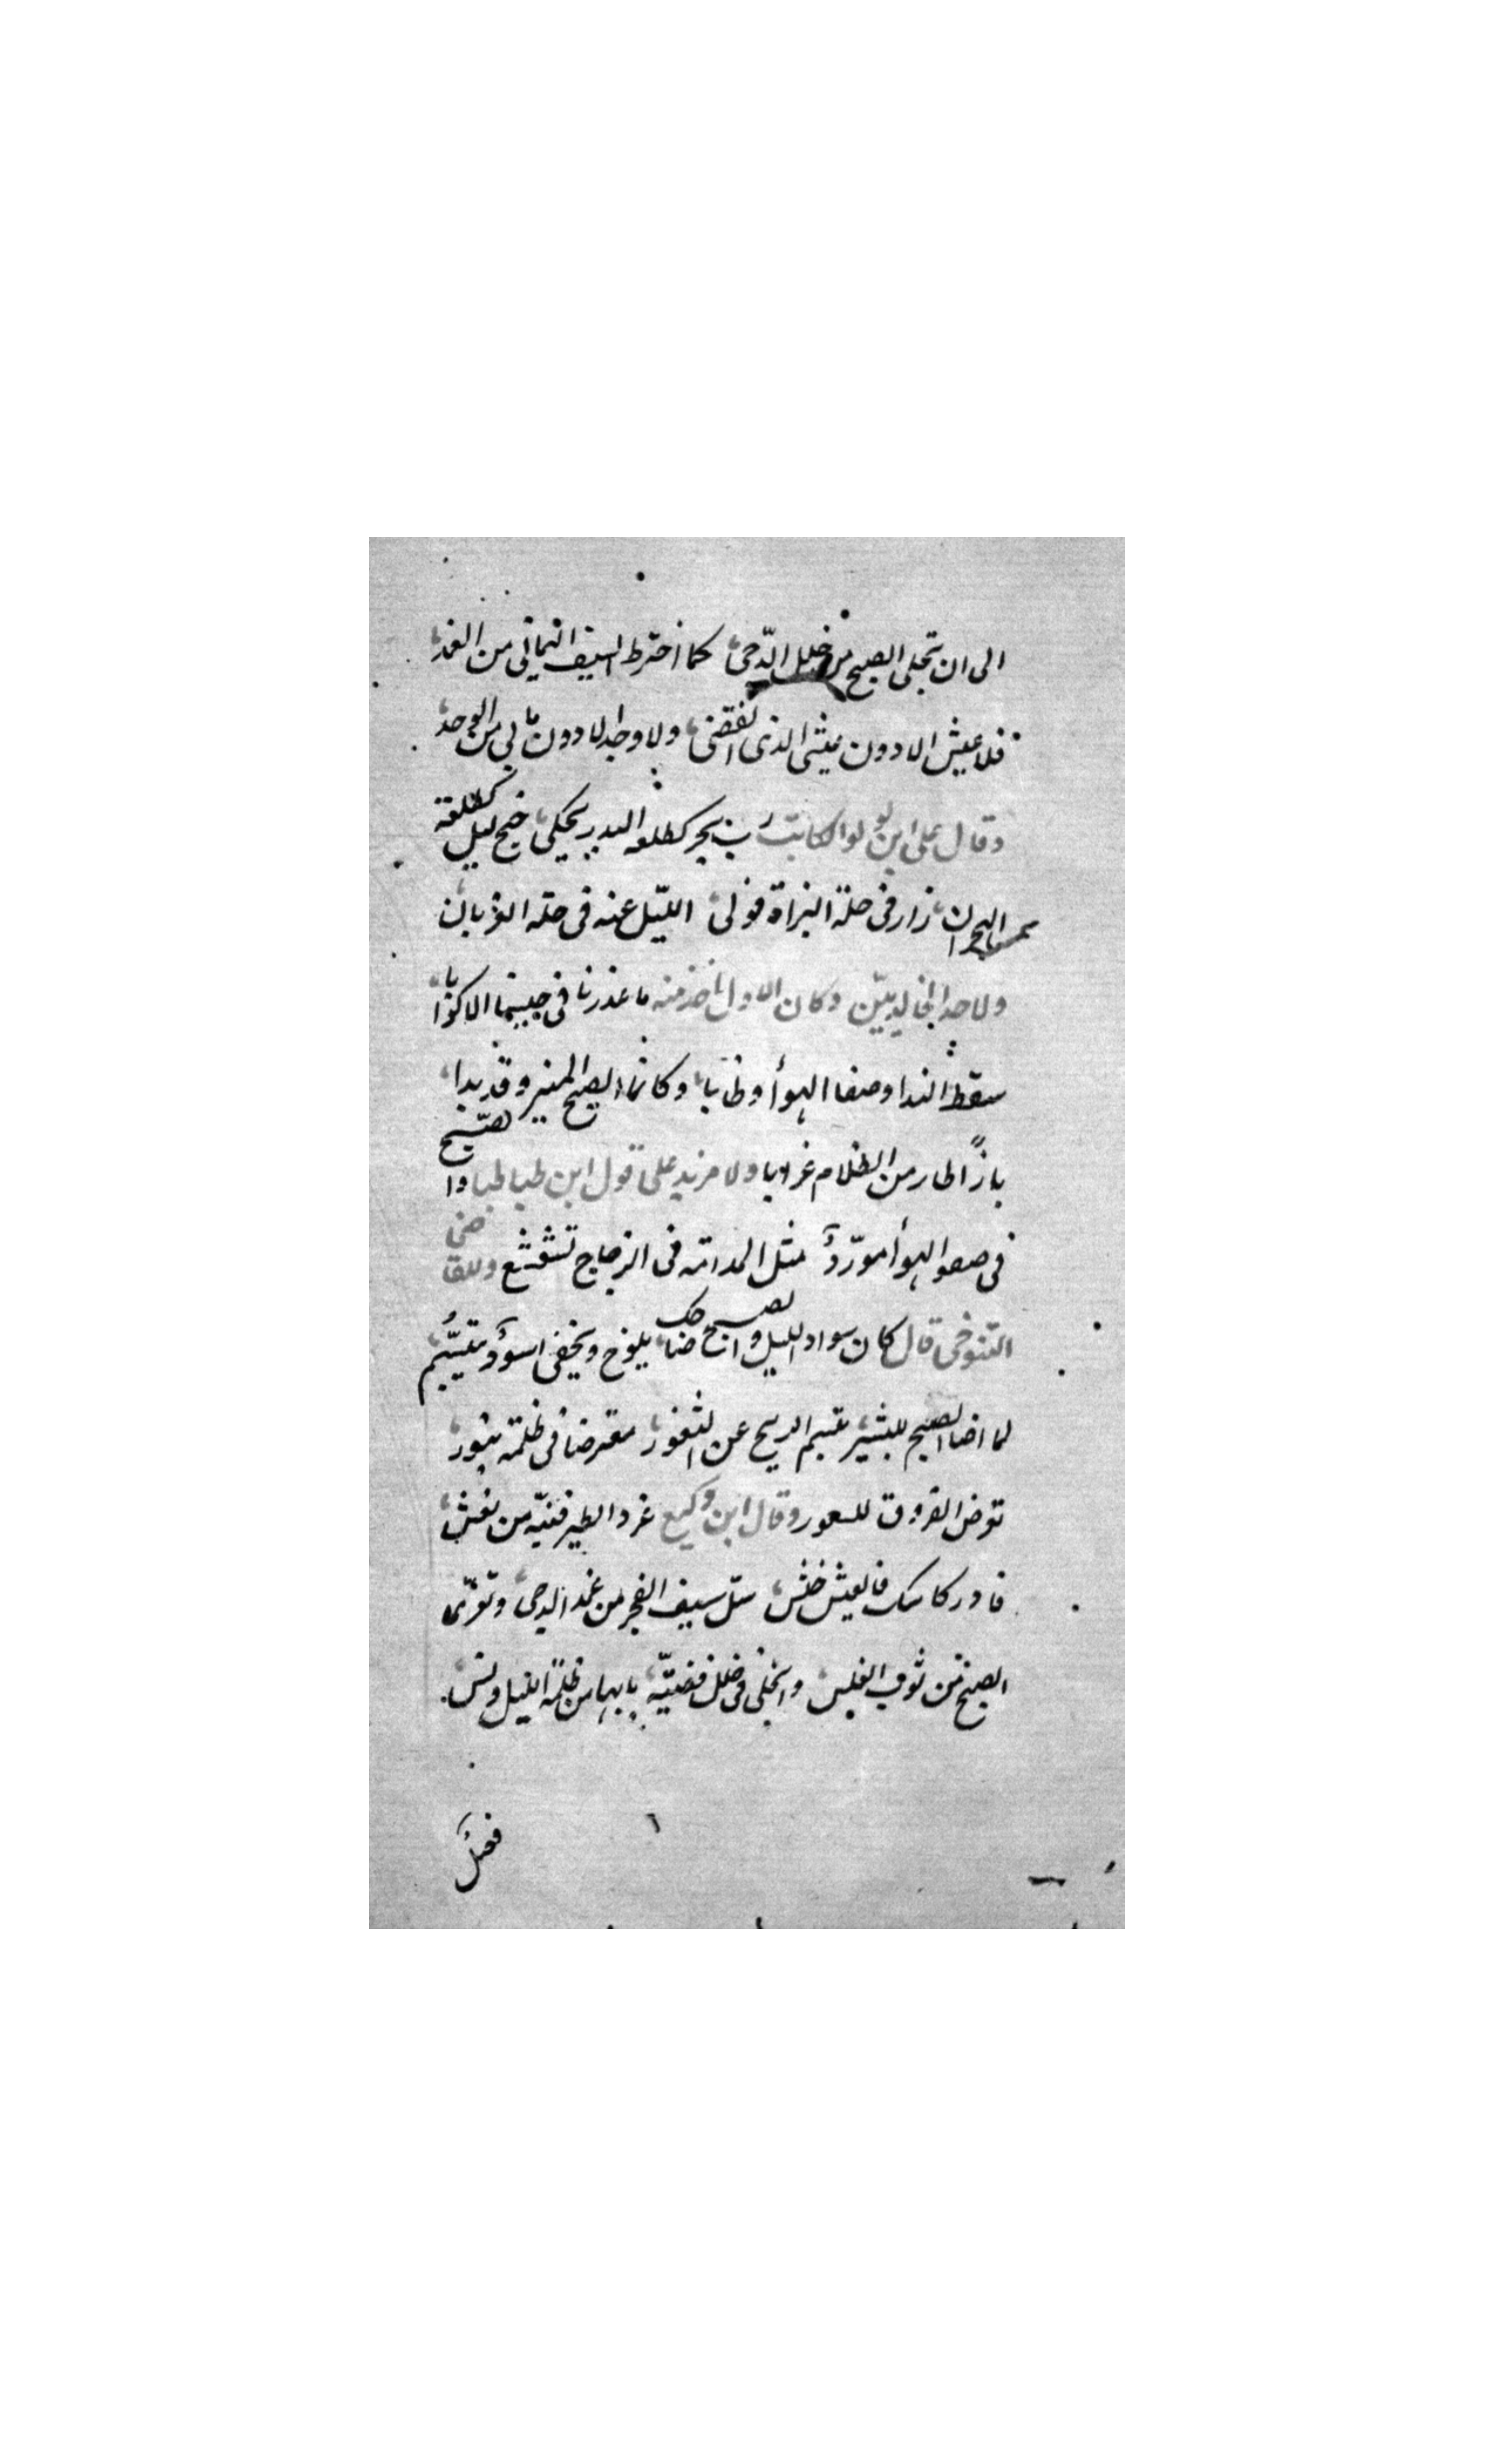 الى ان تجلى الصبح من خلل الدّجى كما اخترط السيف اليمانى من الغمد
فلا عيش الا دون عيشى الذى انقضى ولا وجد الا دون ما بى من الوجد
وقال على ابن لولو الكاتب رب فجر كطلعه البدر يحكى جنح ليل كطلعة
الهجران زار فى حلة البزاة فولى الليل عنه فى حله الغربان
ولاحد الخالديين وكان الاول اخذ منه ما عذرنا فى الاكوابا
سقط الندا وصفا الهوأ وطابا وكانما الصبح المنير وقد بدا
بازاً اطار من الظلام غرابا ولا مزيد على قول ابن طباطبا والصبح
فى صفو الهوأ مورّد مثل المدامه فى الزجاج تشعشع وللقاضى
التنوخى قال كان سواد الليل والصبح ضاحك يلوح ويخفى اسود يتبسّم
لما اضا الصبح للبشير تبسم الريح عن الثغور معترضا فى ظلمه بنور
الفروق للسعور وقال ابن وكيع غرد الطير فنبّه من نعس
فادر كاسك فالعيش خلس سلّ سيف الفجر من غمد الدجى وتعرّى
الصبح من ثوب الغلس وانجلى فى حلل فضيّه ما بها من ظلمة الليل دنس
فصل